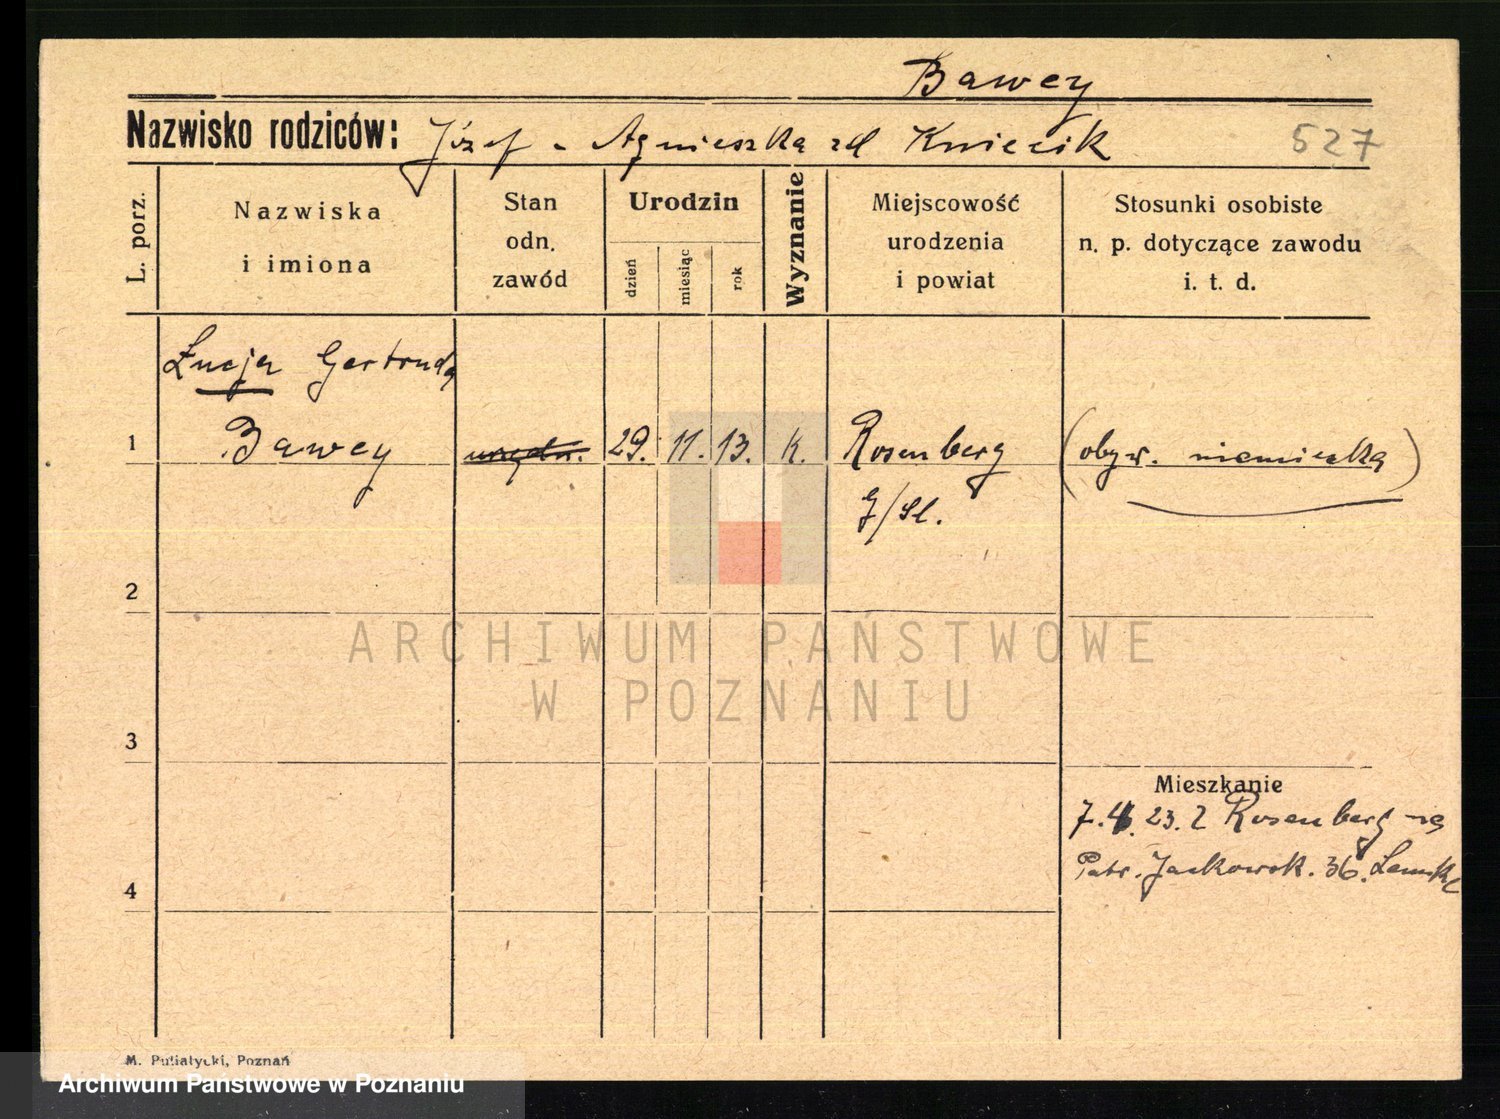 Bawey
Nazwisko rodziców: Józef - Agnieszka zd Kmiecik 527
L. porz.
Nazwiska
i imiona
Stan
odn.
zawód
Urodzin
dzień
miesiąc
rok
Wyznanie
Miejscowość
urodzenia
i powiat
Stosunki osobiste
n. p. dotyczące zawodu
i. t. d.
Łucja Gertruda
1 Bawey urzędn. 29. 11. 13. K. Rosenberg (obyw. niemiecka)
G/Sl.
2
ARCHIWUM PAŃSTWOWE
W POZNANIU
3
Mieszkanie
7.4. 23. z Rosenberg na
Patr. Jackowsk. 36.
4
M. Putiatycki, Poznań
Archiwum Państwowe w Poznaniu